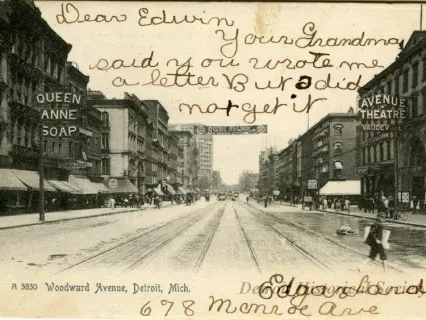 Dear Edwin
Your Grandma
said you wrote me
a letter But I did
not get it
QUEEN
ANNE
SOAP
AVENUE
THEATRE
VAUDEVILLE
A 3830 Woodward Avenue, Detroit, Mich.
Detroit Historical Society
Edgar
678 Monroe Ave